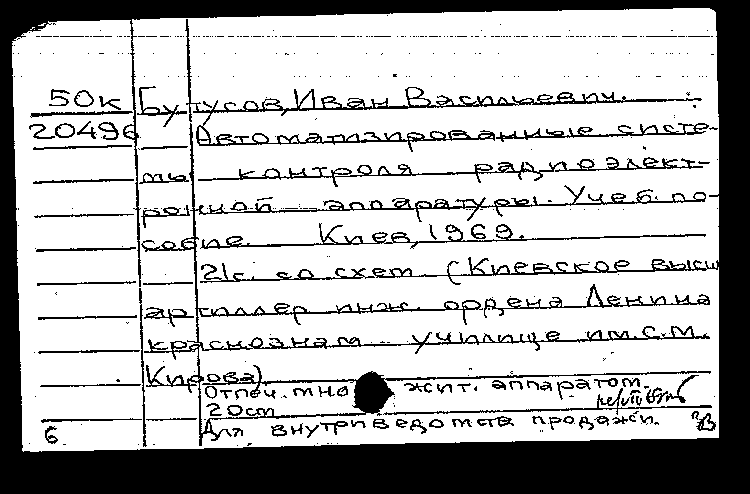 50к Бутусов, Иван Васильевич.
20496 Автоматизированные систе-
мы контроля радиоэлект-
ронной аппаратуры. Учеб. по-
собие. Киев, 1969.
21с. со схем (Киевское высш
артиллер инж. ордена Ленина
краснознам училище им. С.М.
Кирова).
Отпеч. мно жит. аппаратом.
20см
6 Для внутриведомств продажи.